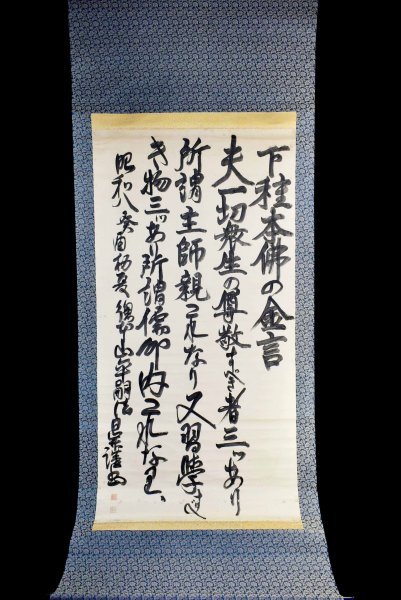 下種本佛の金言
夫一切衆生の尊敬すべき者三ツあり
所謂主師親これなり又習學す
べき物三ツあり所謂儒外内これなり、
昭和八癸酉初夏